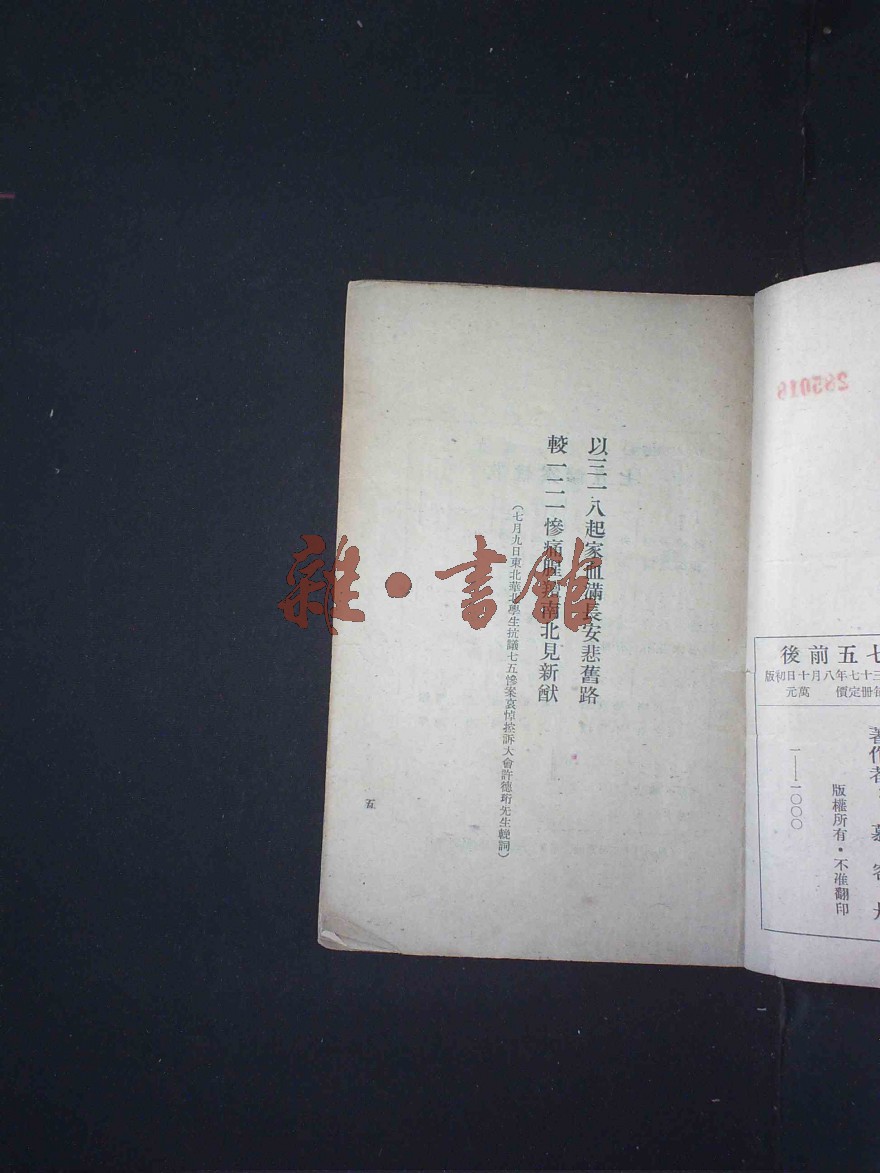 285018
七五前後
三十七年八月十日初版
每册定價 萬元
著作者：慕容丹
一——一〇〇〇
版權所有・不准翻印
以三一八起家血滿長安悲舊路
較一二一慘痛 南北見新猷
（七月九日東北華北學生抗議七五慘案哀悼控訴大會許德珩先生輓詞）
五
雜・書館